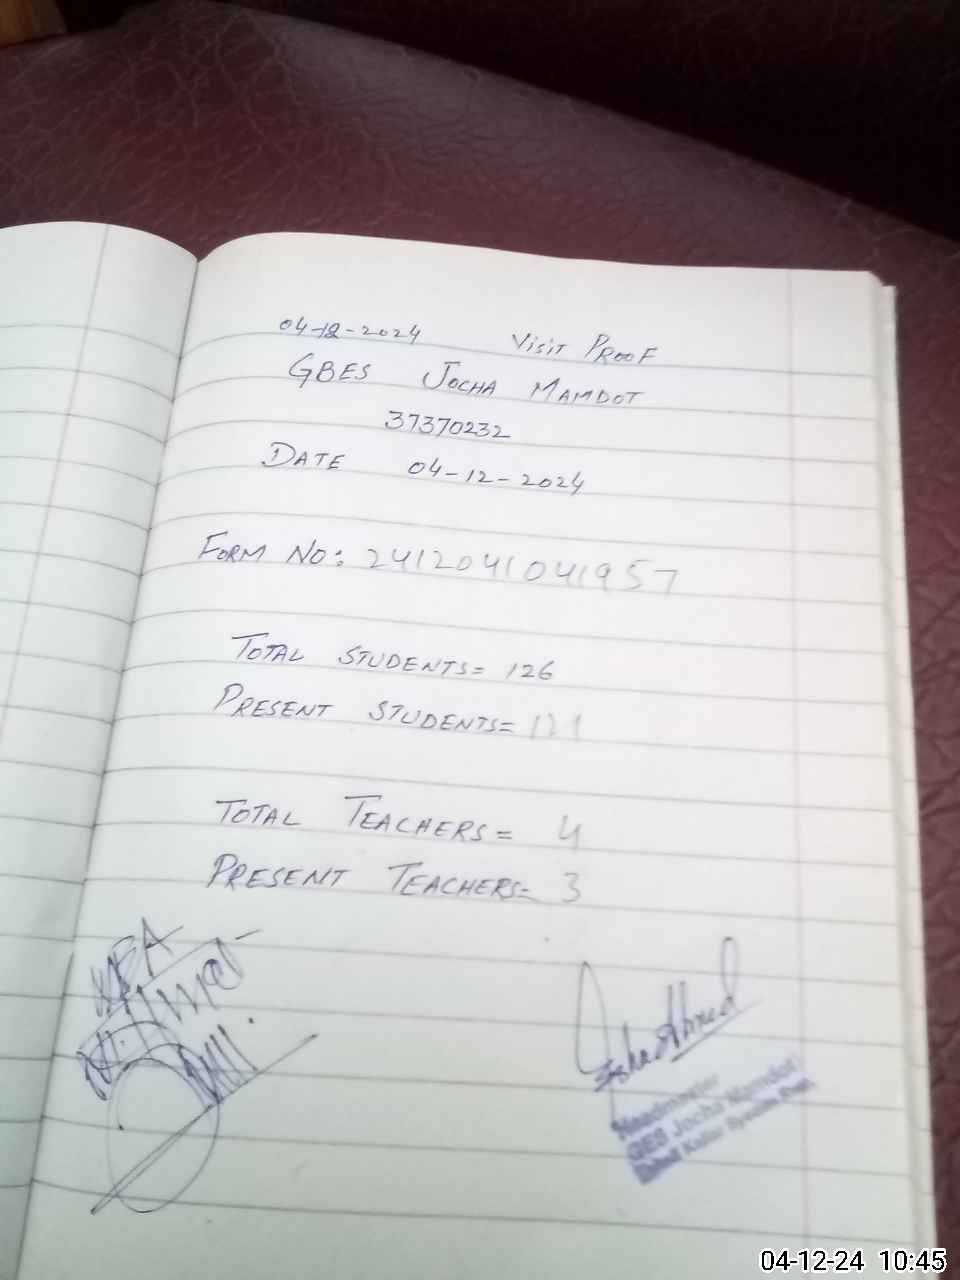 04-12-2024 Visit PROOF
GBES JOCHA MAMDOT
37370232
DATE 04-12-2024
FORM NO: 2412041041957
TOTAL STUDENTS= 126
PRESENT STUDENTS= 121
TOTAL TEACHERS= 4
PRESENT TEACHERS= 3
Headmaster
GES Jocha Mamdot
04-12-24 10:45